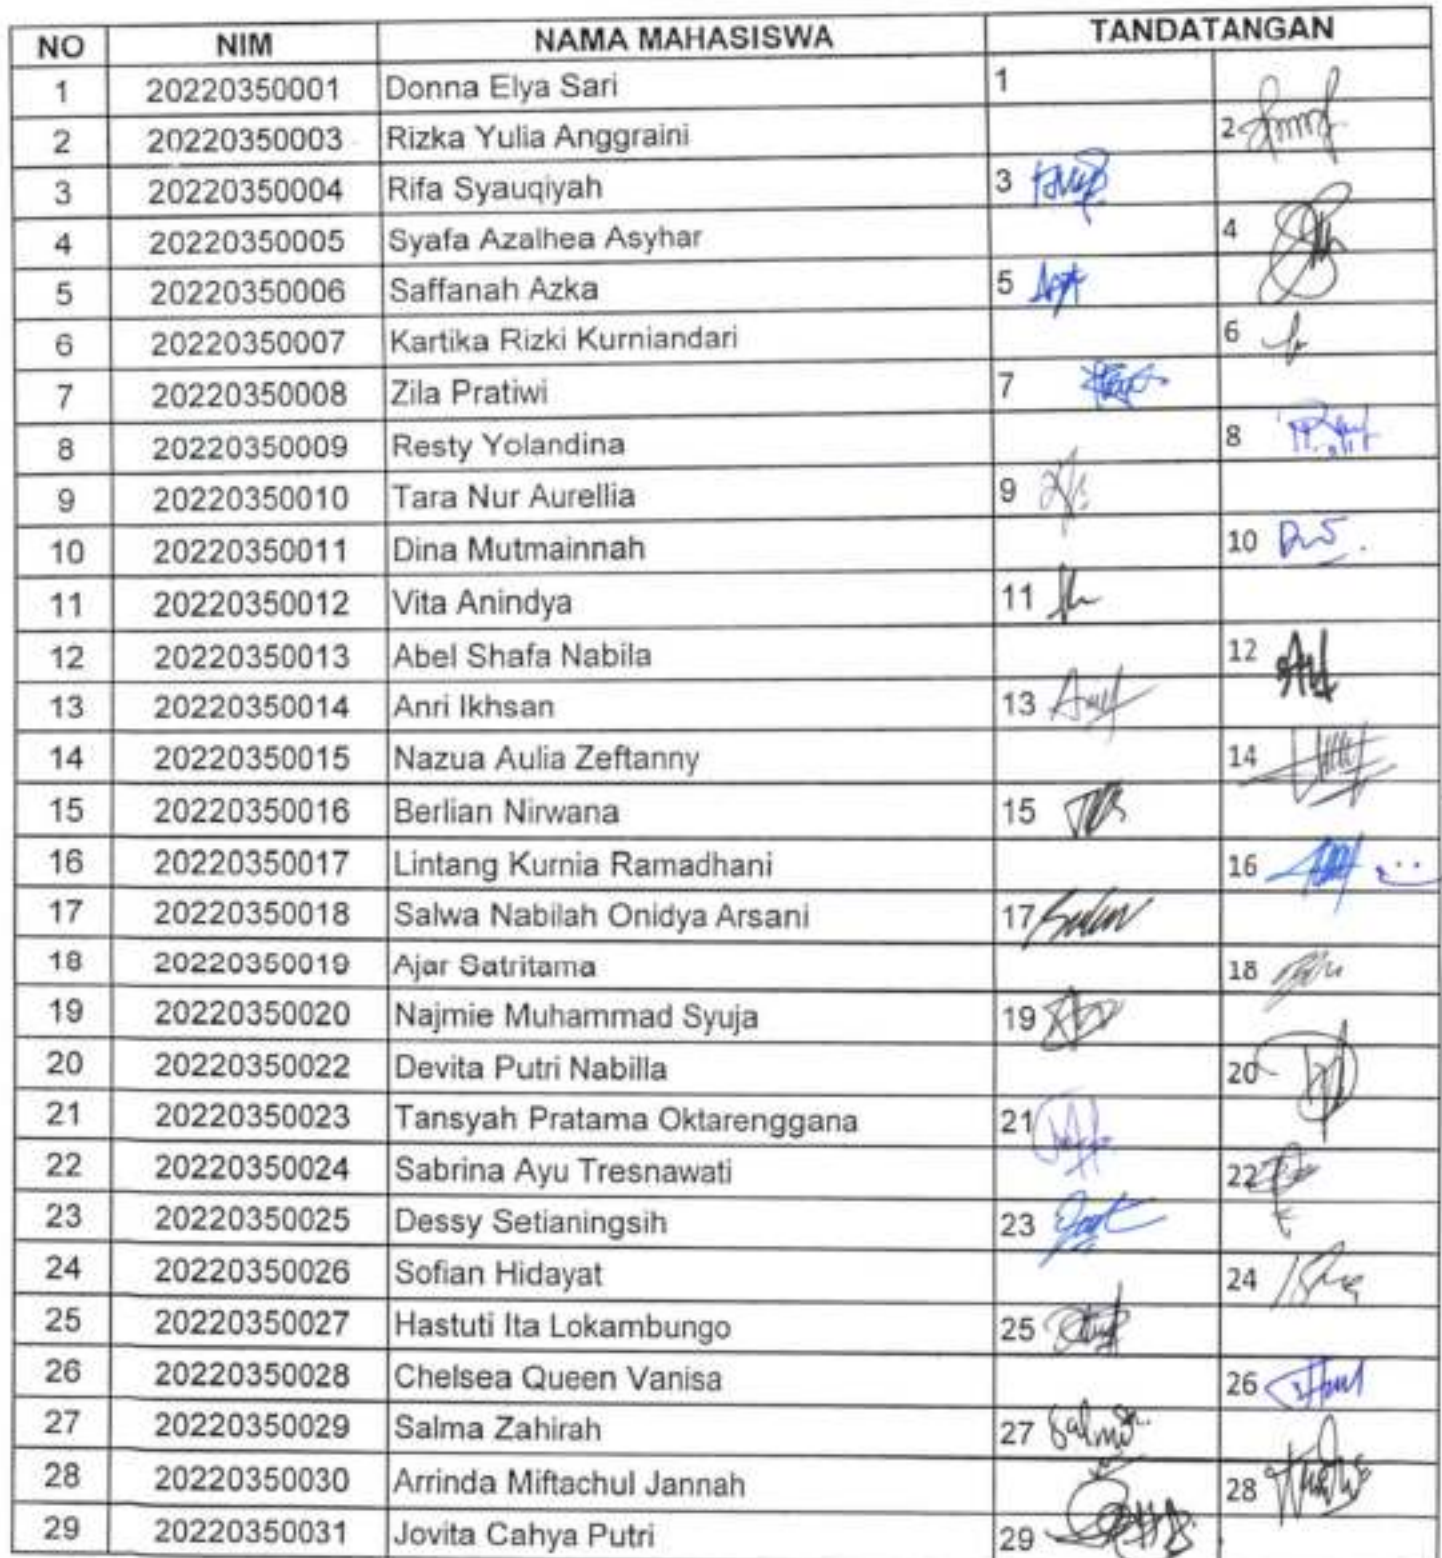 NO NIM NAMA MAHASISWA TANDATANGAN
1 20220350001 Donna Elya Sari 1
2 20220350003 Rizka Yulia Anggraini 2
3 20220350004 Rifa Syauqiyah 3
4 20220350005 Syafa Azalhea Asyhar 4
5 20220350006 Saffanah Azka 5
6 20220350007 Kartika Rizki Kurniandari 6
7 20220350008 Zila Pratiwi 7
8 20220350009 Resty Yolandina 8
9 20220350010 Tara Nur Aurellia 9
10 20220350011 Dina Mutmainnah 10
11 20220350012 Vita Anindya 11
12 20220350013 Abel Shafa Nabila 12
13 20220350014 Anri Ikhsan 13
14 20220350015 Nazua Aulia Zeftanny 14
15 20220350016 Berlian Nirwana 15
16 20220350017 Lintang Kurnia Ramadhani 16
17 20220350018 Salwa Nabilah Onidya Arsani 17
18 20220350019 Ajar Satritama 18
19 20220350020 Najmie Muhammad Syuja 19
20 20220350022 Devita Putri Nabilla 20
21 20220350023 Tansyah Pratama Oktarenggana 21
22 20220350024 Sabrina Ayu Tresnawati 22
23 20220350025 Dessy Setianingsih 23
24 20220350026 Sofian Hidayat 24
25 20220350027 Hastuti Ita Lokambungo 25
26 20220350028 Chelsea Queen Vanisa 26
27 20220350029 Salma Zahirah 27 Salma
28 20220350030 Arrinda Miftachul Jannah 28
29 20220350031 Jovita Cahya Putri 29